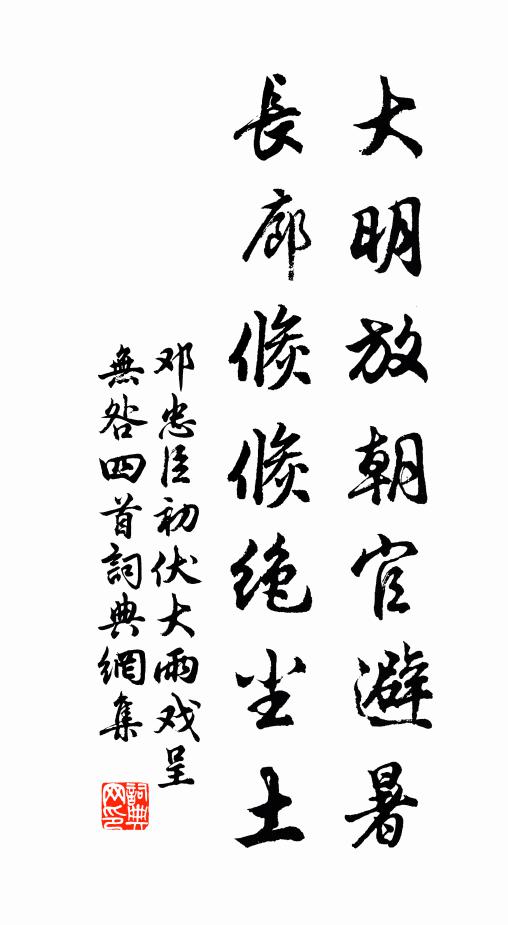 大明放朝官避暑
長廊倐倐絶尘土
邓忠臣初伏大雨戏呈
無咎四首詞典網集
詞典
网印